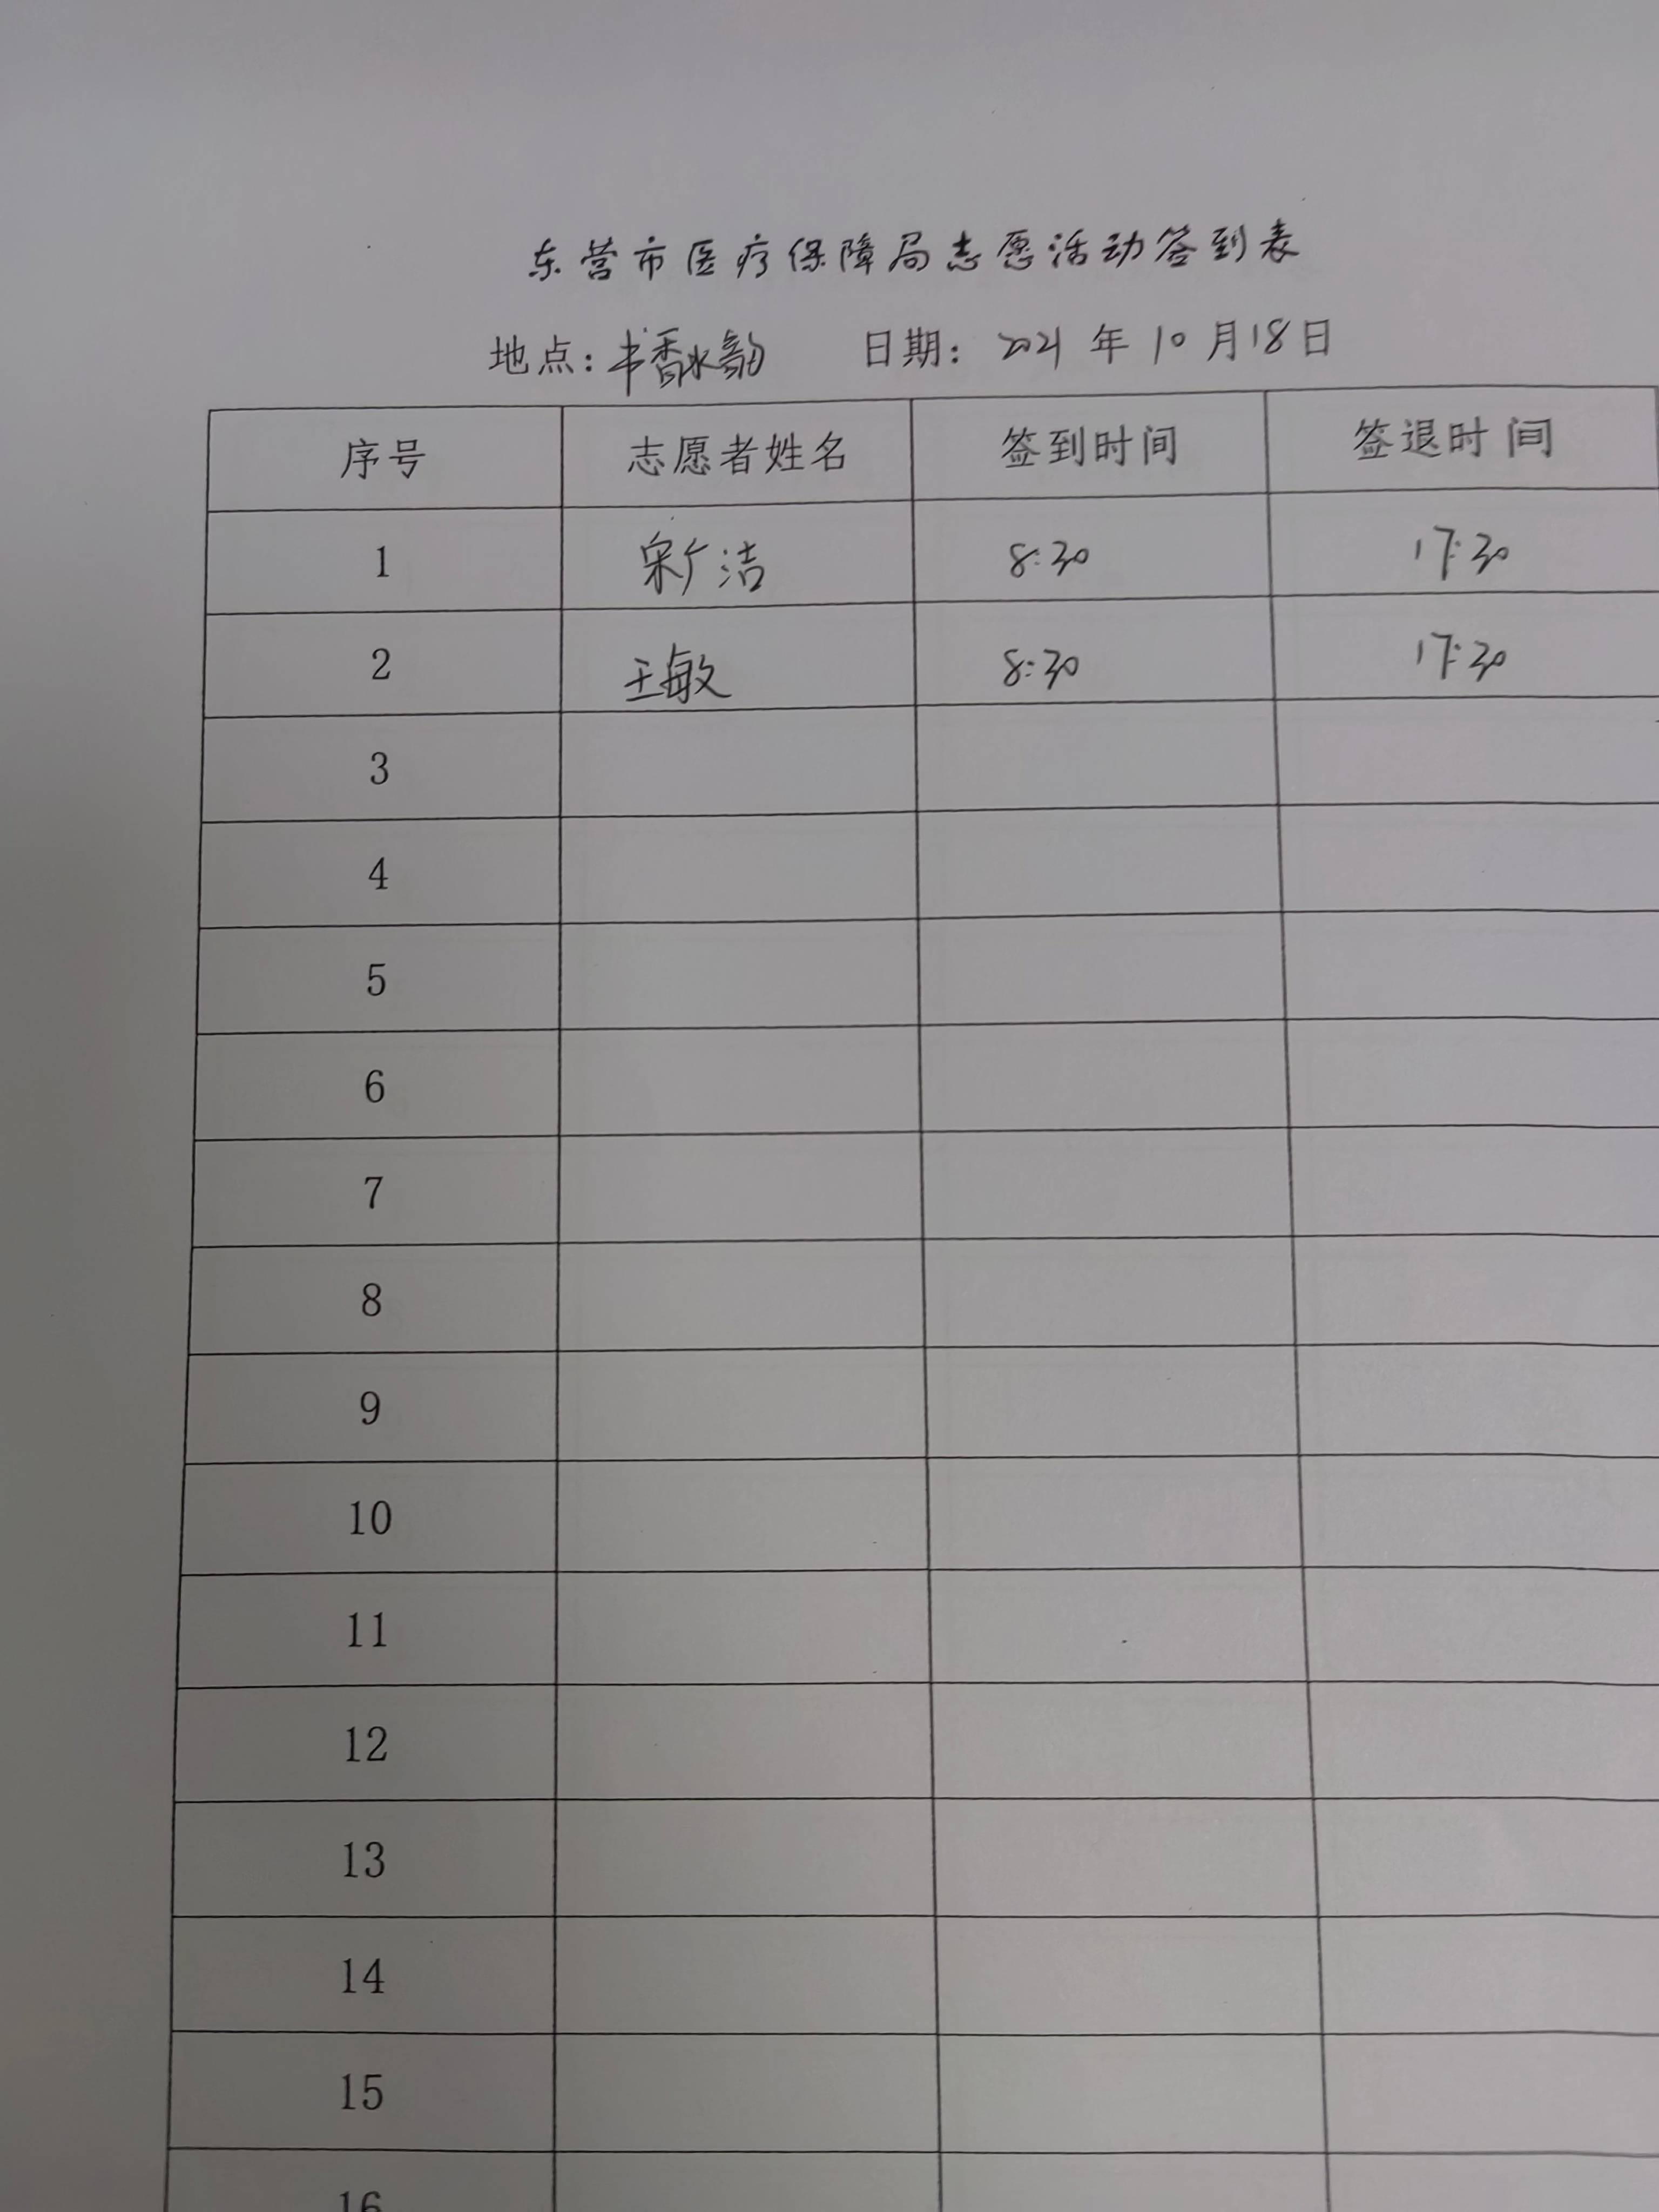 东营市医疗保障局志愿活动签到表
地点：书香水韵 日期：2021年10月18日
序号 志愿者姓名 签到时间 签退时间
1 宋广洁 8:30 17:30
2 王敏 8:30 17:30
3
4
5
6
7
8
9
10
11
12
13
14
15
16